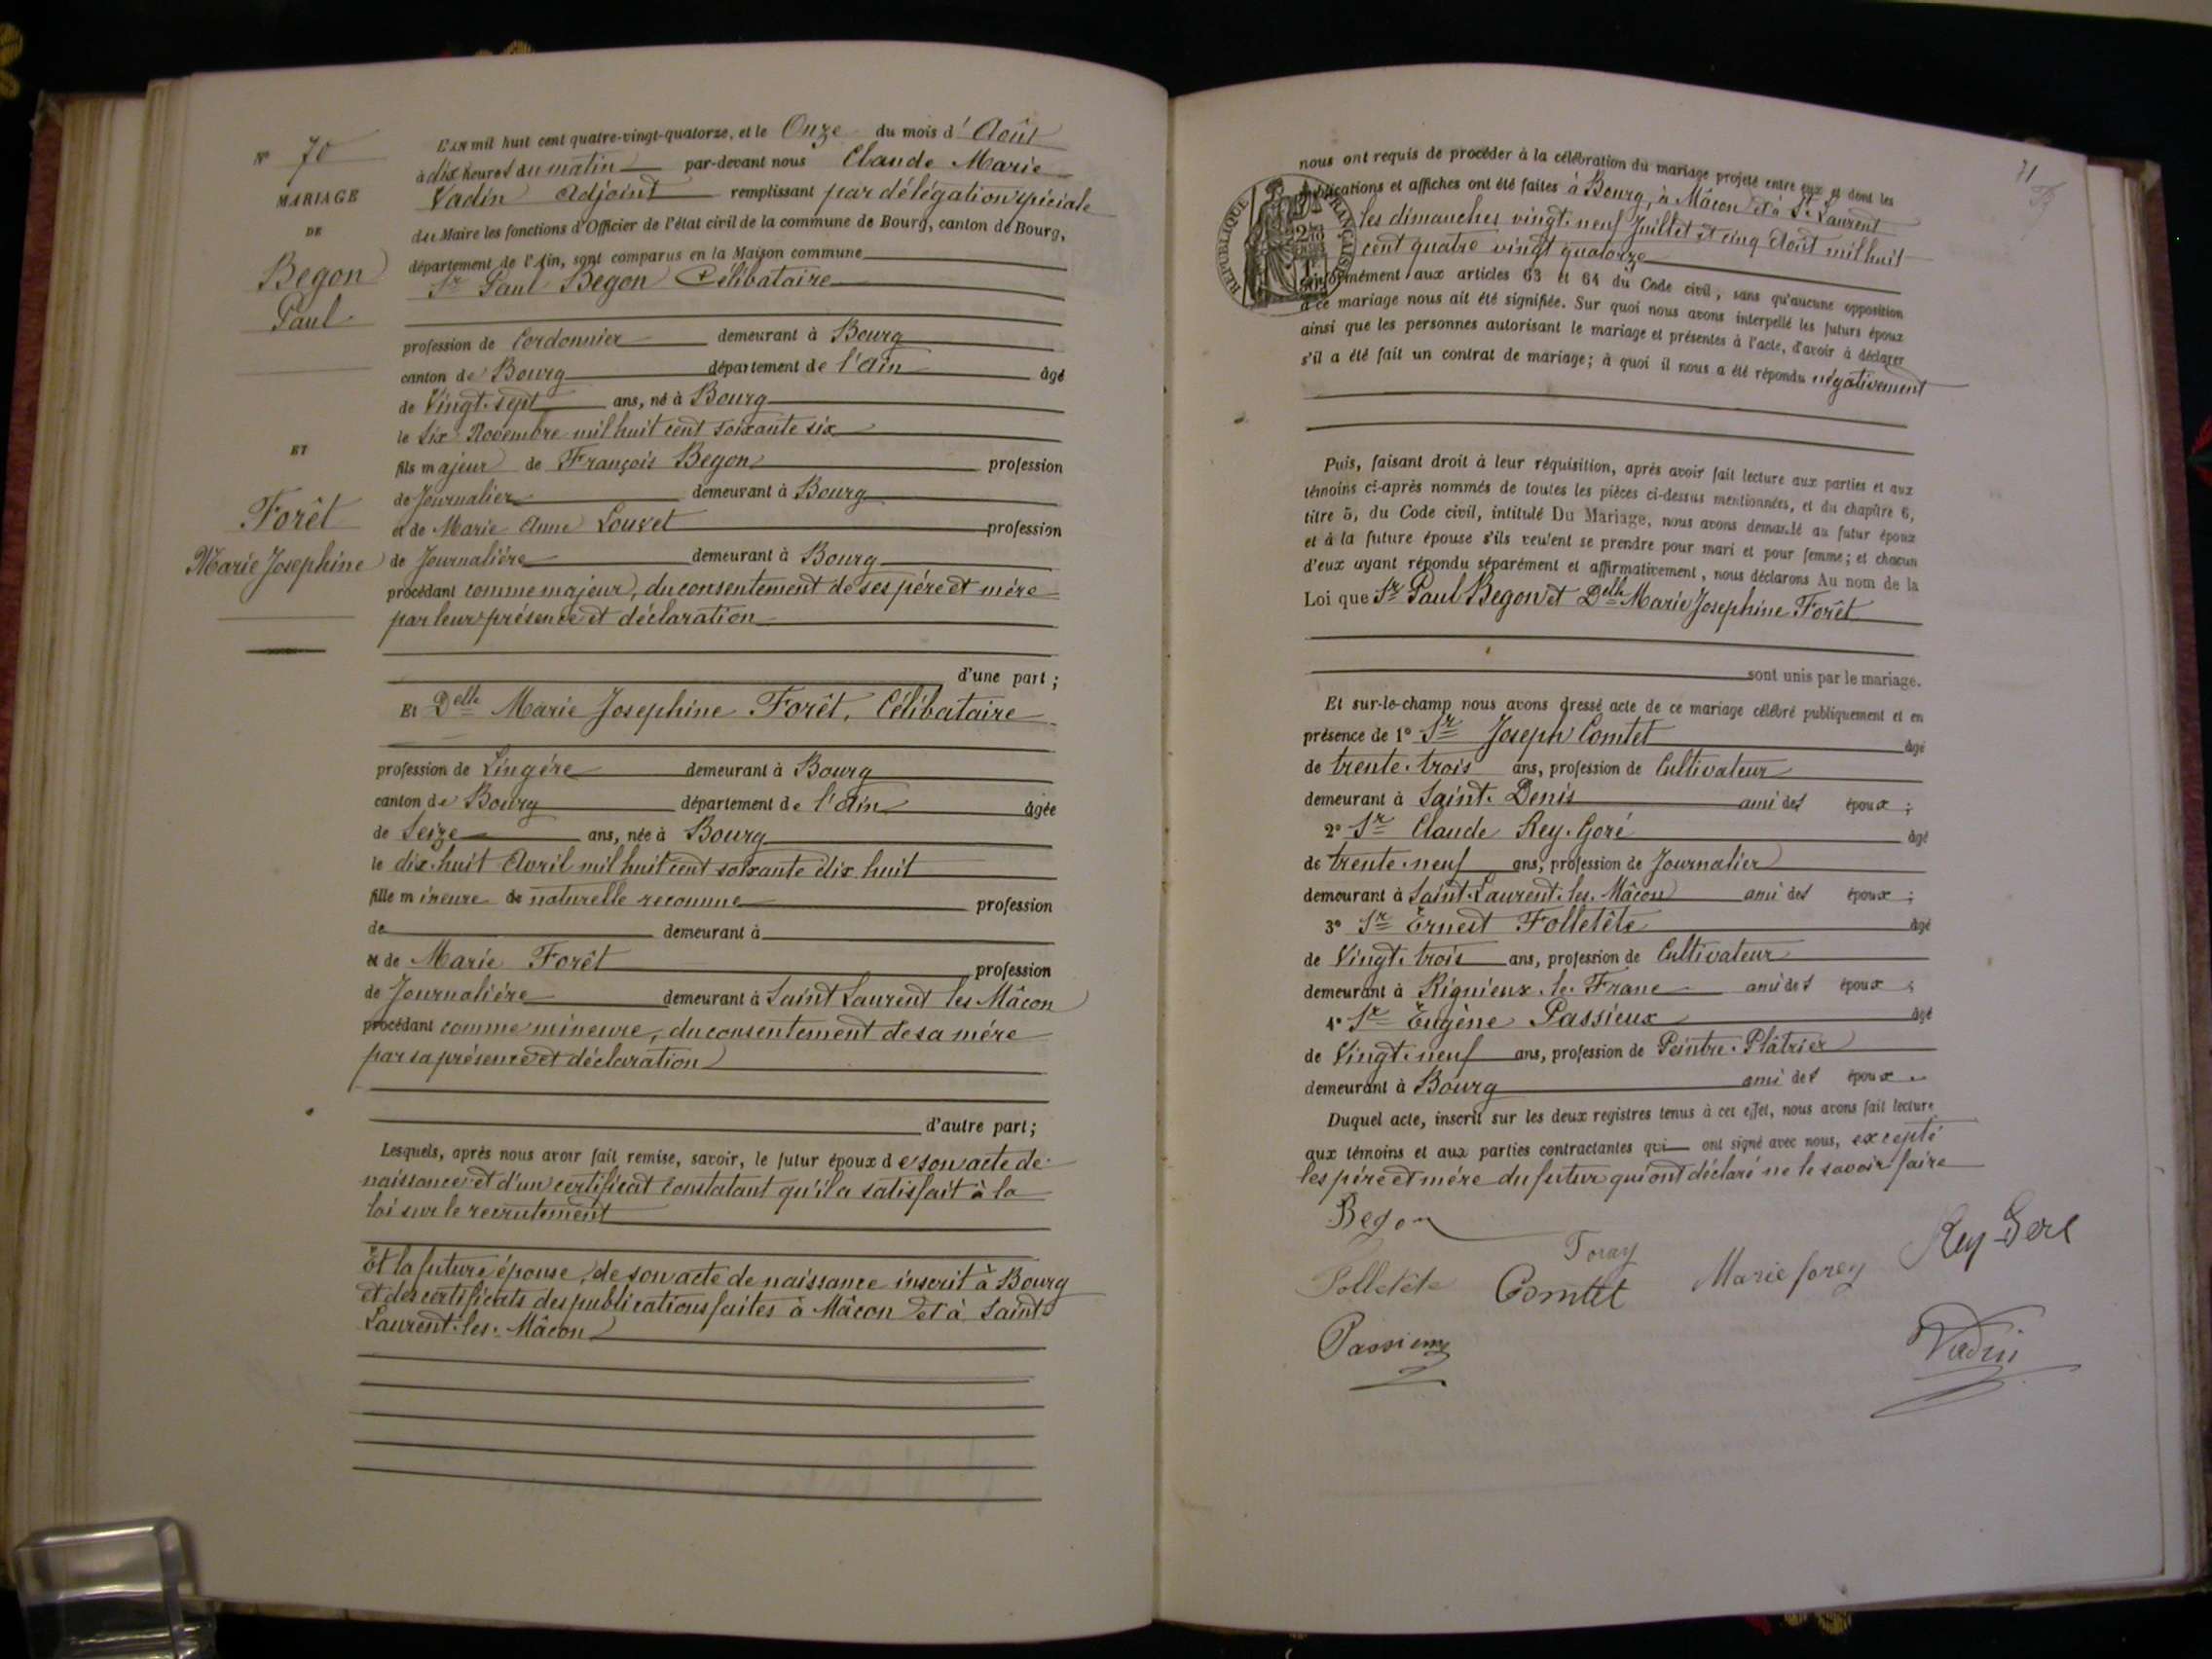 N° 70
MARIAGE
DE
Begon
Paul
ET
Forêt
Marie Josephine
L'AN mil huit cent quatre-vingt-quatorze, et le Onze du mois d'Août
à dix heures du matin par-devant nous Claude Marie
Vadin Adjoint remplissant par délégation spéciale
du Maire les fonctions d'Officier de l'état civil de la commune de Bourg, canton de Bourg,
département de l'Ain, sont comparus en la Maison commune
Sr Paul Begon Célibataire
profession de Cordonnier demeurant à Bourg
canton de Bourg département de l'Ain âgé
de Vingt-sept ans, né à Bourg
le Six Novembre mil huit cent soixante six
fils majeur de François Begon profession
de Journalier demeurant à Bourg
et de Marie Anne Louvet profession
de Journalière demeurant à Bourg
procédant comme majeur, du consentement de ses père et mère
par leur présence et déclaration
d'une part ;
Et Delle Marie Josephine Forêt, Célibataire
profession de Lingère demeurant à Bourg
canton de Bourg département de l'Ain âgée
de Seize ans, née à Bourg
le dix-huit Avril mil huit cent soixante dix huit
fille mineure de naturelle reconnue profession
de demeurant à
et de Marie Forêt profession
de Journalière demeurant à Saint Laurent les Mâcon
procédant comme mineure, du consentement de sa mère
par sa présence et déclaration
d'autre part ;
Lesquels, après nous avoir fait remise, savoir, le futur époux de son acte de
naissance et d'un certificat constatant qu'il a satisfait à la
loi sur le recrutement
Et la future épouse, de son acte de naissance inscrit à Bourg
et des certificats des publications faites à Mâcon et à Saint
Laurent-les-Mâcon
71
nous ont requis de procéder à la célébration du mariage projeté entre eux et dont les
publications et affiches ont été faites à Bourg, à Mâcon et à St Laurent
les dimanches vingt-neuf Juillet et cinq Août mil huit
cent quatre vingt quatorze
RÉPUBLIQUE FRANÇAISE
conformément aux articles 63 et 64 du Code civil, sans qu'aucune opposition
à ce mariage nous ait été signifiée. Sur quoi nous avons interpellé les futurs époux
ainsi que les personnes autorisant le mariage et présentes à l'acte, d'avoir à déclarer
s'il a été fait un contrat de mariage ; à quoi il nous a été répondu négativement
Puis, faisant droit à leur réquisition, après avoir fait lecture aux parties et aux
témoins ci-après nommés de toutes les pièces ci-dessus mentionnées, et du chapitre 6,
titre 5, du Code civil, intitulé Du Mariage, nous avons demandé au futur époux
et à la future épouse s'ils veulent se prendre pour mari et pour femme ; et chacun
d'eux ayant répondu séparément et affirmativement, nous déclarons Au nom de la
Loi que Sr Paul Begon et Delle Marie Josephine Forêt
sont unis par le mariage.
Et sur-le-champ nous avons dressé acte de ce mariage célébré publiquement et en
présence de 1° Sr Joseph Comtet âgé
de trente-trois ans, profession de Cultivateur
demeurant à Saint-Denis ami des époux ;
2° Sr Claude Rey-Goré âgé
de trente-neuf ans, profession de Journalier
demeurant à Saint-Laurent-les-Mâcon ami des époux ;
3° Sr Ernest Folletête âgé
de Vingt-trois ans, profession de Cultivateur
demeurant à Rignieux-le-Franc ami des époux ;
4° Sr Eugène Passieux âgé
de Vingt-neuf ans, profession de Peintre-Plâtrier
demeurant à Bourg ami des époux.
Duquel acte, inscrit sur les deux registres tenus à cet effet, nous avons fait lecture
aux témoins et aux parties contractantes qui ont signé avec nous, excepté
les père et mère du futur qui ont déclaré ne le savoir faire
Begon
Foray
Rey-Gere
Folletête Comtet Marie forey
Passieux
Vadin